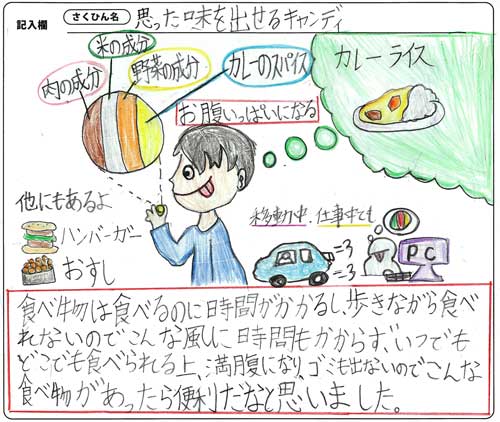 記入欄 さくひん名 思った味を出せるキャンディ
米の成分
肉の成分
野菜の成分
カレーのスパイス
カレーライス
お腹いっぱいになる
他にもあるよ
ハンバーガー
おすし
移動中、仕事中でも
=3
=3
PC
食べ物は食べるのに時間がかかるし、歩きながら食べ
れないのでこんな風に時間もかからず、いつでも
どこでも食べられる上、満腹になり、ゴミも出ないのでこんな
食べ物があったら便利だなと思いました。